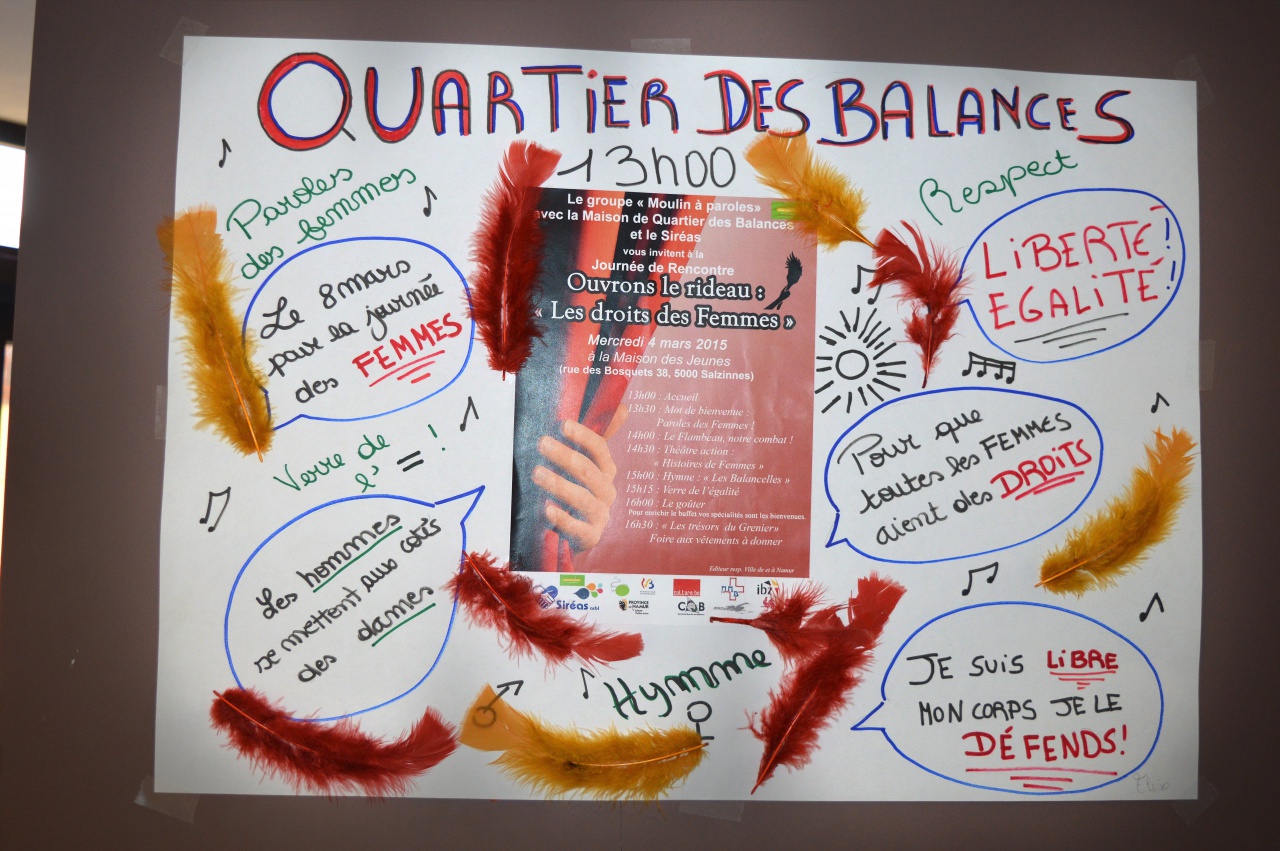 QUARTIER DES BALANCES
13h00
Paroles
des femmes
Le 8 mars
pour la journée
des FEMMES
Verre de
l' = !
Les hommes
se mettent aux cotés
des dames
Le groupe « Moulin à paroles»
avec la Maison de Quartier des Balances
et le Siréas
vous invitent à la
Journée de Rencontre
Ouvrons le rideau :
« Les droits des Femmes »
Mercredi 4 mars 2015
à la Maison des Jeunes
(rue des Bosquets 38, 5000 Salzinnes)
13h00 : Accueil
13h30 : Mot de bienvenue :
Paroles des Femmes !
14h00 : Le Flambeau, notre combat !
14h30 : Théâtre action :
« Histoires de Femmes »
15h00 : Hymne : « Les Balancelles »
15h15 : Verre de l'égalité
16h00 : Le goûter
Pour enrichir le buffet vos spécialités sont les bienvenues.
16h30 : « Les trésors du Grenier»
Foire aux vêtements à donner
Editeur resp. Ville de et à Namur
Siréas asbl
PROVINCE
DE NAMUR
culture.be
ibz
Hymne
Respect
LIBERTÉ !
EGALITÉ !
Pour que
toutes les FEMMES
aient des DROITS
JE SUIS LIBRE
MON CORPS JE LE
DÉFENDS!